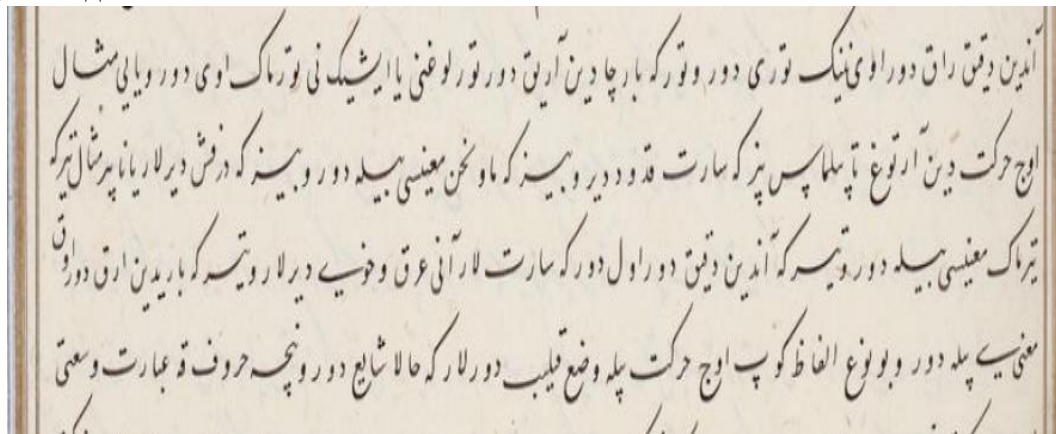 آندین دقیق راق دور اوی نینک توری دور و تور که بارچادین آریق دور تور لوغنی یا ایشیک نی تورماک اوی دور و یایی مثال
اوچ حرکت دین آرتوغ تاپیلماس بیز که سارت قدوددیر و بیز که ماونحن معنیسی بیله دور و بیز که درفش دیرلار یانا بیر مثال تیر که
تیرماک معنیسی بیله دور و تیر که آندین دقیق دور اول دور که سارت لار آنی عرق و خوی دیرلار و تیر که باریدین ارق دور اوق
معنی سی بیله دور و بو نوع الفاظ کوپ اوچ حرکت بیله وضع قیلیب دورلار که حالا شایع دور و نیچه حروف قه عبارت وسعتی